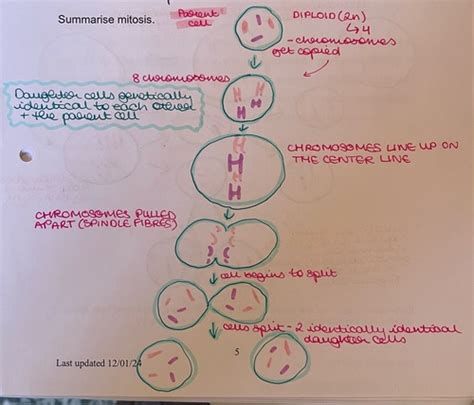 Summarise mitosis.
Parent
cell
DIPLOID (2n)
↳ 4
- chromosomes
get copied
8 chromosomes
Daughter cells genetically
identical to each other
+ the parent cell
CHROMOSOMES LINE UP ON
THE CENTER LINE
CHROMOSOMES PULLED
APART (SPINDLE FIBRES)
cell begins to split
cells split - 2 identically identical
daughter cells
5
Last updated 12/01/24